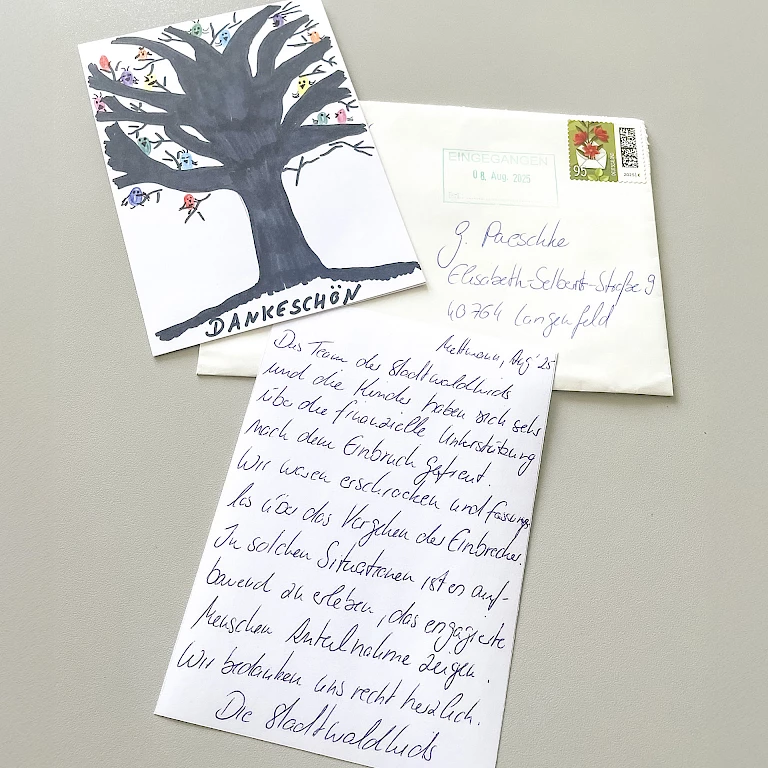 DANKESCHÖN
EINGEGANGEN
08. Aug. 2025
95
G. Paeschke
Elisabeth-Selbert-Straße 9
40764 Langenfeld
Mettmann, Aug' 25
Das Team der Stadtwaldkids
und die Kinder haben sich sehr
über die finanzielle Unterstützung
nach dem Einbruch gefreut.
Wir waren erschrocken und fassungs
los über das Vorgehen der Einbrecher.
In solchen Situationen ist es auf-
bauend zu erleben, das engagierte
Menschen Anteilnahme zeigen.
Wir bedanken uns recht herzlich.
Die Stadtwaldkids